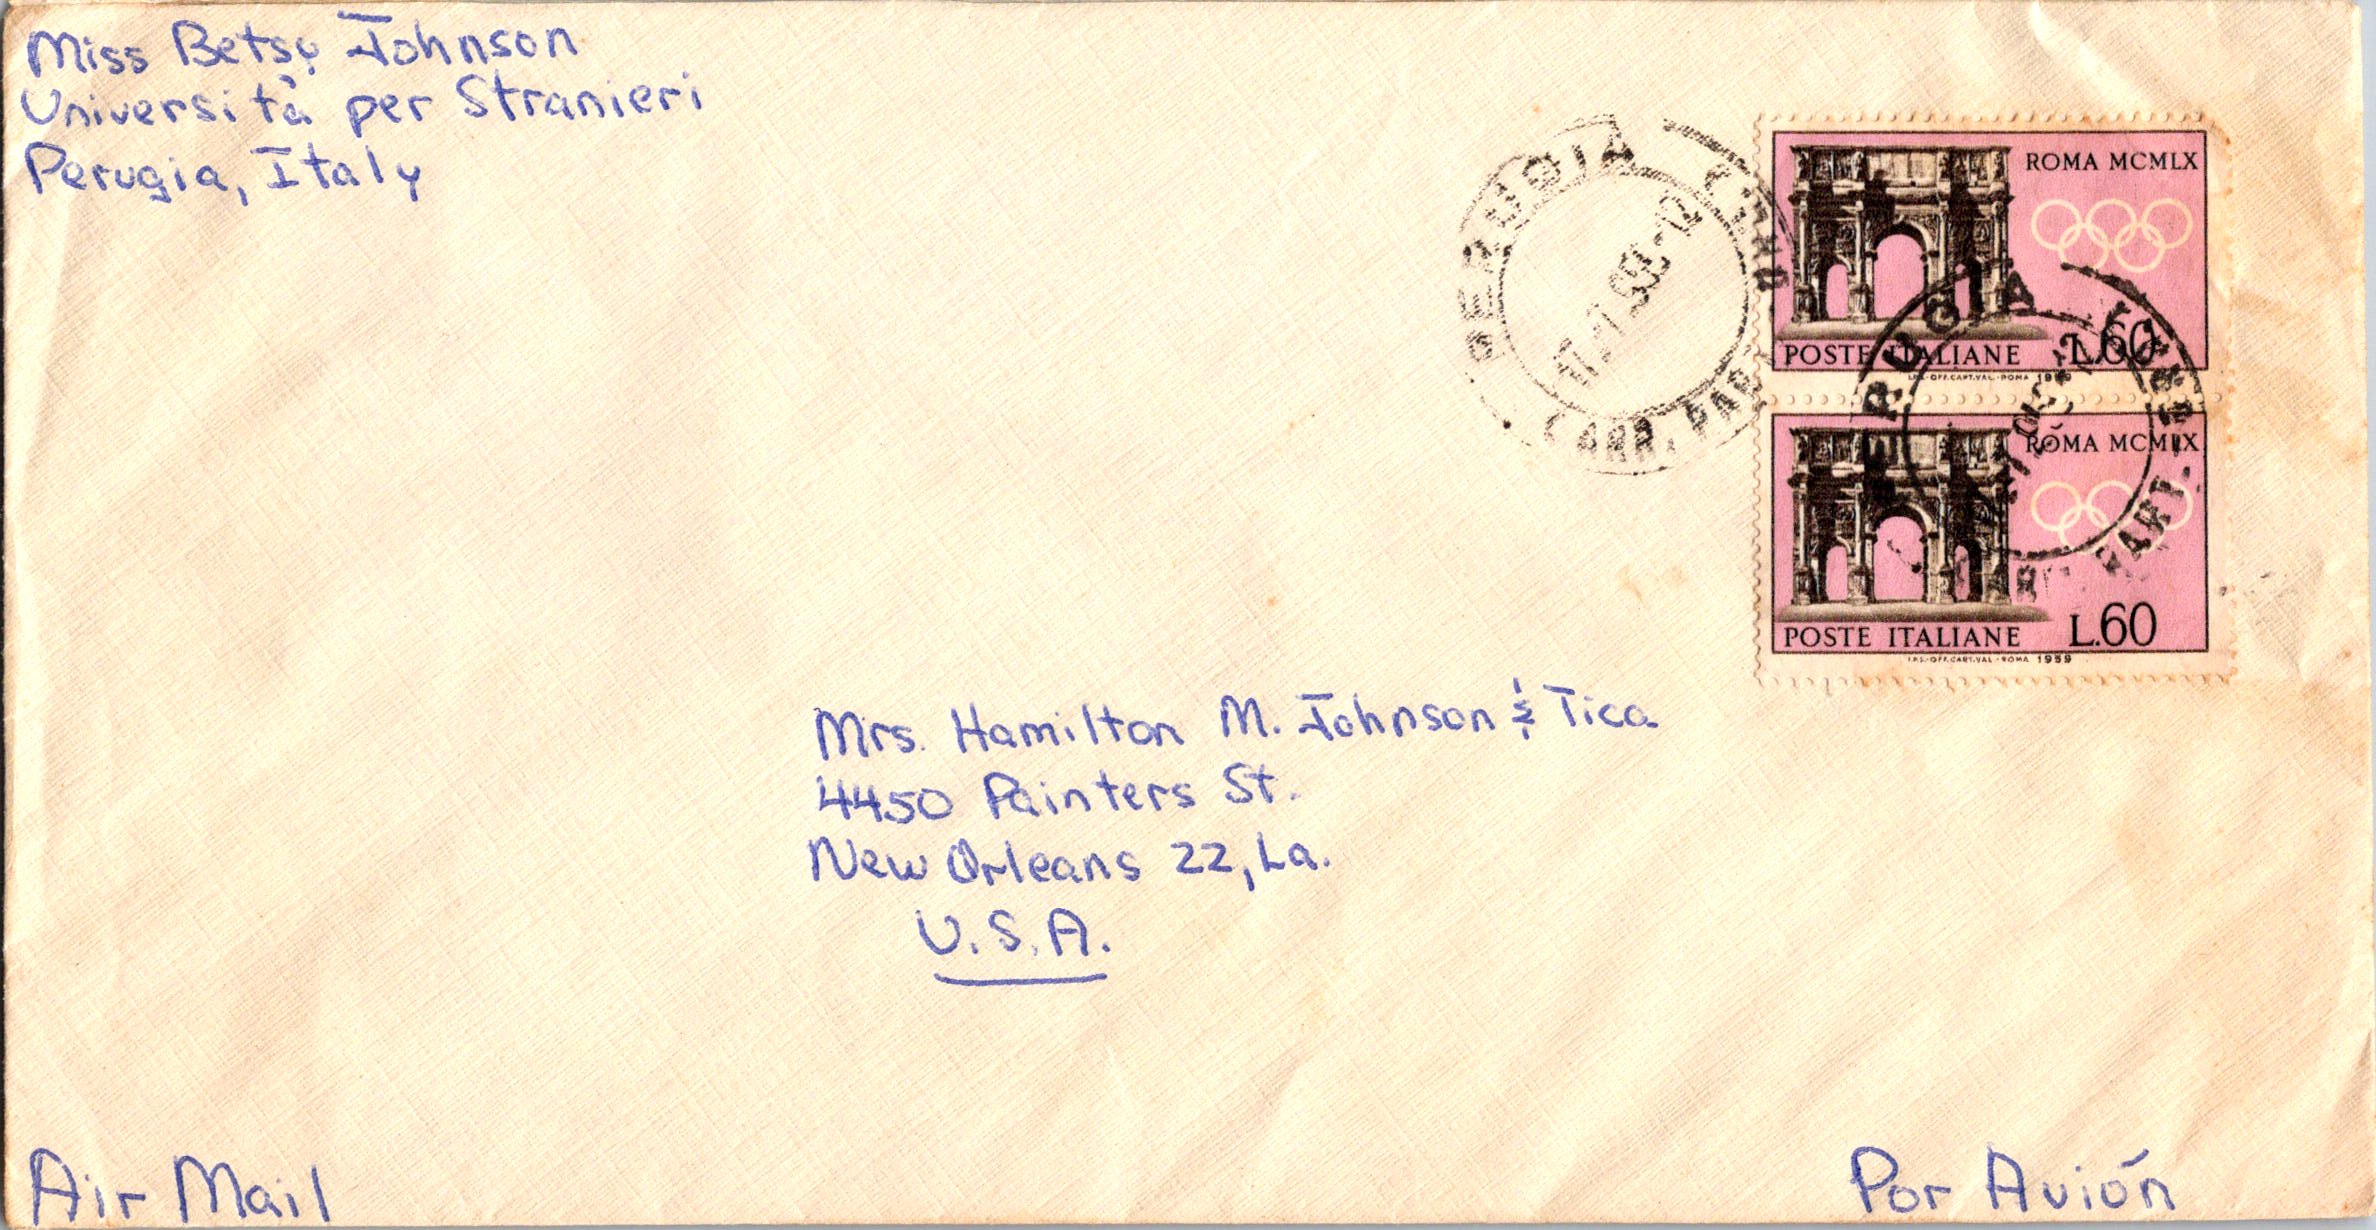 Miss Betsy Johnson
Università per Stranieri
Perugia, Italy
PERUGIA
CORR. PAR
ROMA MCMLX
POSTE ITALIANE L.60
I.P.S.-OFF.CART.VAL.-ROMA 1959
ROMA MCMLX
POSTE ITALIANE L.60
I.P.S.-OFF.CART.VAL.-ROMA 1959
Mrs. Hamilton M. Johnson & Tica
4450 Painters St.
New Orleans 22, La.
U.S.A.
Air Mail
Por Avión